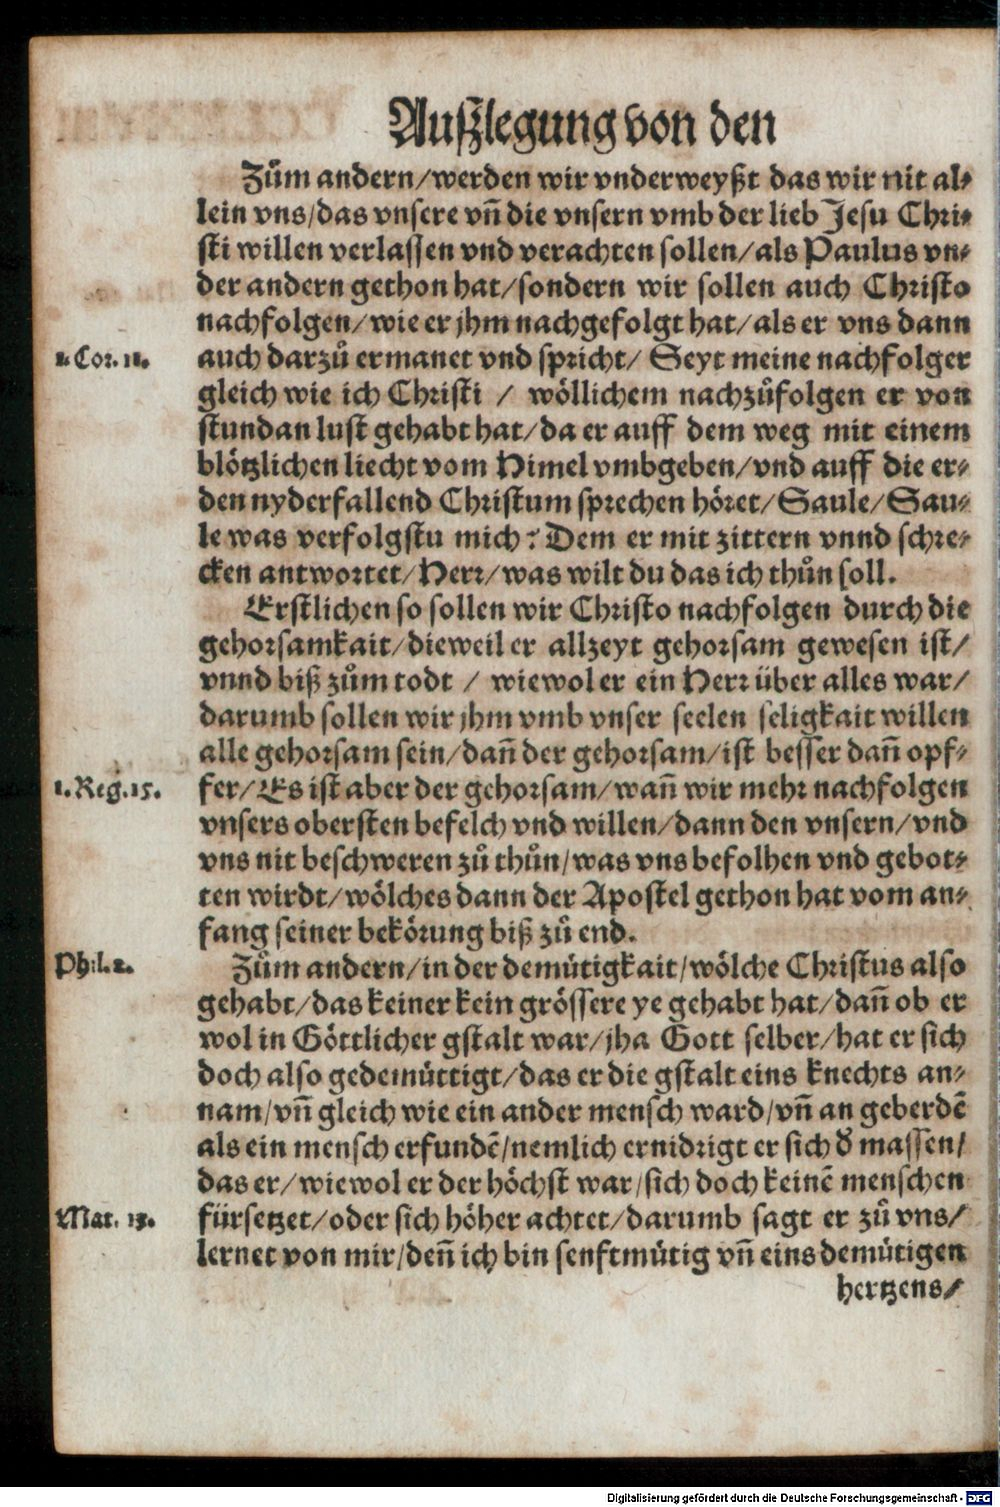 Außlegung von den
Zům andern/werden wir vnderweyßt das wir nit al⸗
lein vns/das vnsere vñ die vnsern vmb der lieb Jesu Chri⸗
sti willen verlassen vnd verachten sollen/als Paulus vn⸗
der andern gethon hat/sondern wir sollen auch Christo
nachfolgen/wie er jhm nachgefolgt hat/als er vns dann
1. Cor. 11.
auch darzů ermanet vnd spricht/ Seyt meine nachfolger
gleich wie ich Christi / wöllichem nachzůfolgen er von
stundan lust gehabt hat/da er auff dem weg mit einem
blötzlichen liecht vom Himel vmbgeben/vnd auff die er⸗
den nyderfallend Christum sprechen höret/Saule/Sau⸗
le was verfolgstu mich? Dem er mit zittern vnnd schre⸗
cken antwortet/Herr/was wilt du das ich thůn soll.
Erstlichen so sollen wir Christo nachfolgen durch die
gehorsamkait/dieweil er allzeyt gehorsam gewesen ist/
vnnd biß zům todt / wiewol er ein Herr über alles war/
darumb sollen wir jhm vmb vnser seelen seligkait willen
alle gehorsam sein/dañ der gehorsam/ist besser dañ opf⸗
1. Reg. 15.
fer/Es ist aber der gehorsam/wañ wir mehr nachfolgen
vnsers obersten befelch vnd willen/dann den vnsern/vnd
vns nit beschweren zů thůn/was vns befolhen vnd gebot⸗
ten wirdt/wölches dann der Apostel gethon hat vom an⸗
fang seiner bekörung biß zů end.
Phil. 2.
Zům andern/in der demütigkait/wölche Christus also
gehabt/das keiner kein grössere ye gehabt hat/dañ ob er
wol in Göttlicher gstalt war/jha Gott selber/hat er sich
doch also gedemüttigt/das er die gstalt eins knechts an⸗
nam/vñ gleich wie ein ander mensch ward/vñ an geberdē
als ein mensch erfundē/nemlich ernidrigt er sich ď massen/
das er/wiewol er der höchst war/sich doch keinē menschen
Mat. 11.
fürsetzet/oder sich höher achtet/darumb sagt er zů vns/
lernet von mir/deñ ich bin senftmütig vñ eins demütigen
hertzens/
Digitalisierung gefördert durch die Deutsche Forschungsgemeinschaft - DFG